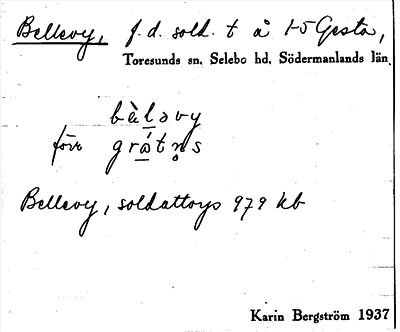 Bellevy, f. d. sold. t å 1-5 Gesta,
Toresunds sn. Selebo hd. Södermanlands län.
bɛ̀l̲əvy
förr grát̲n̥s
Bellevy, soldattorp 979 kb
Karin Bergström 1937